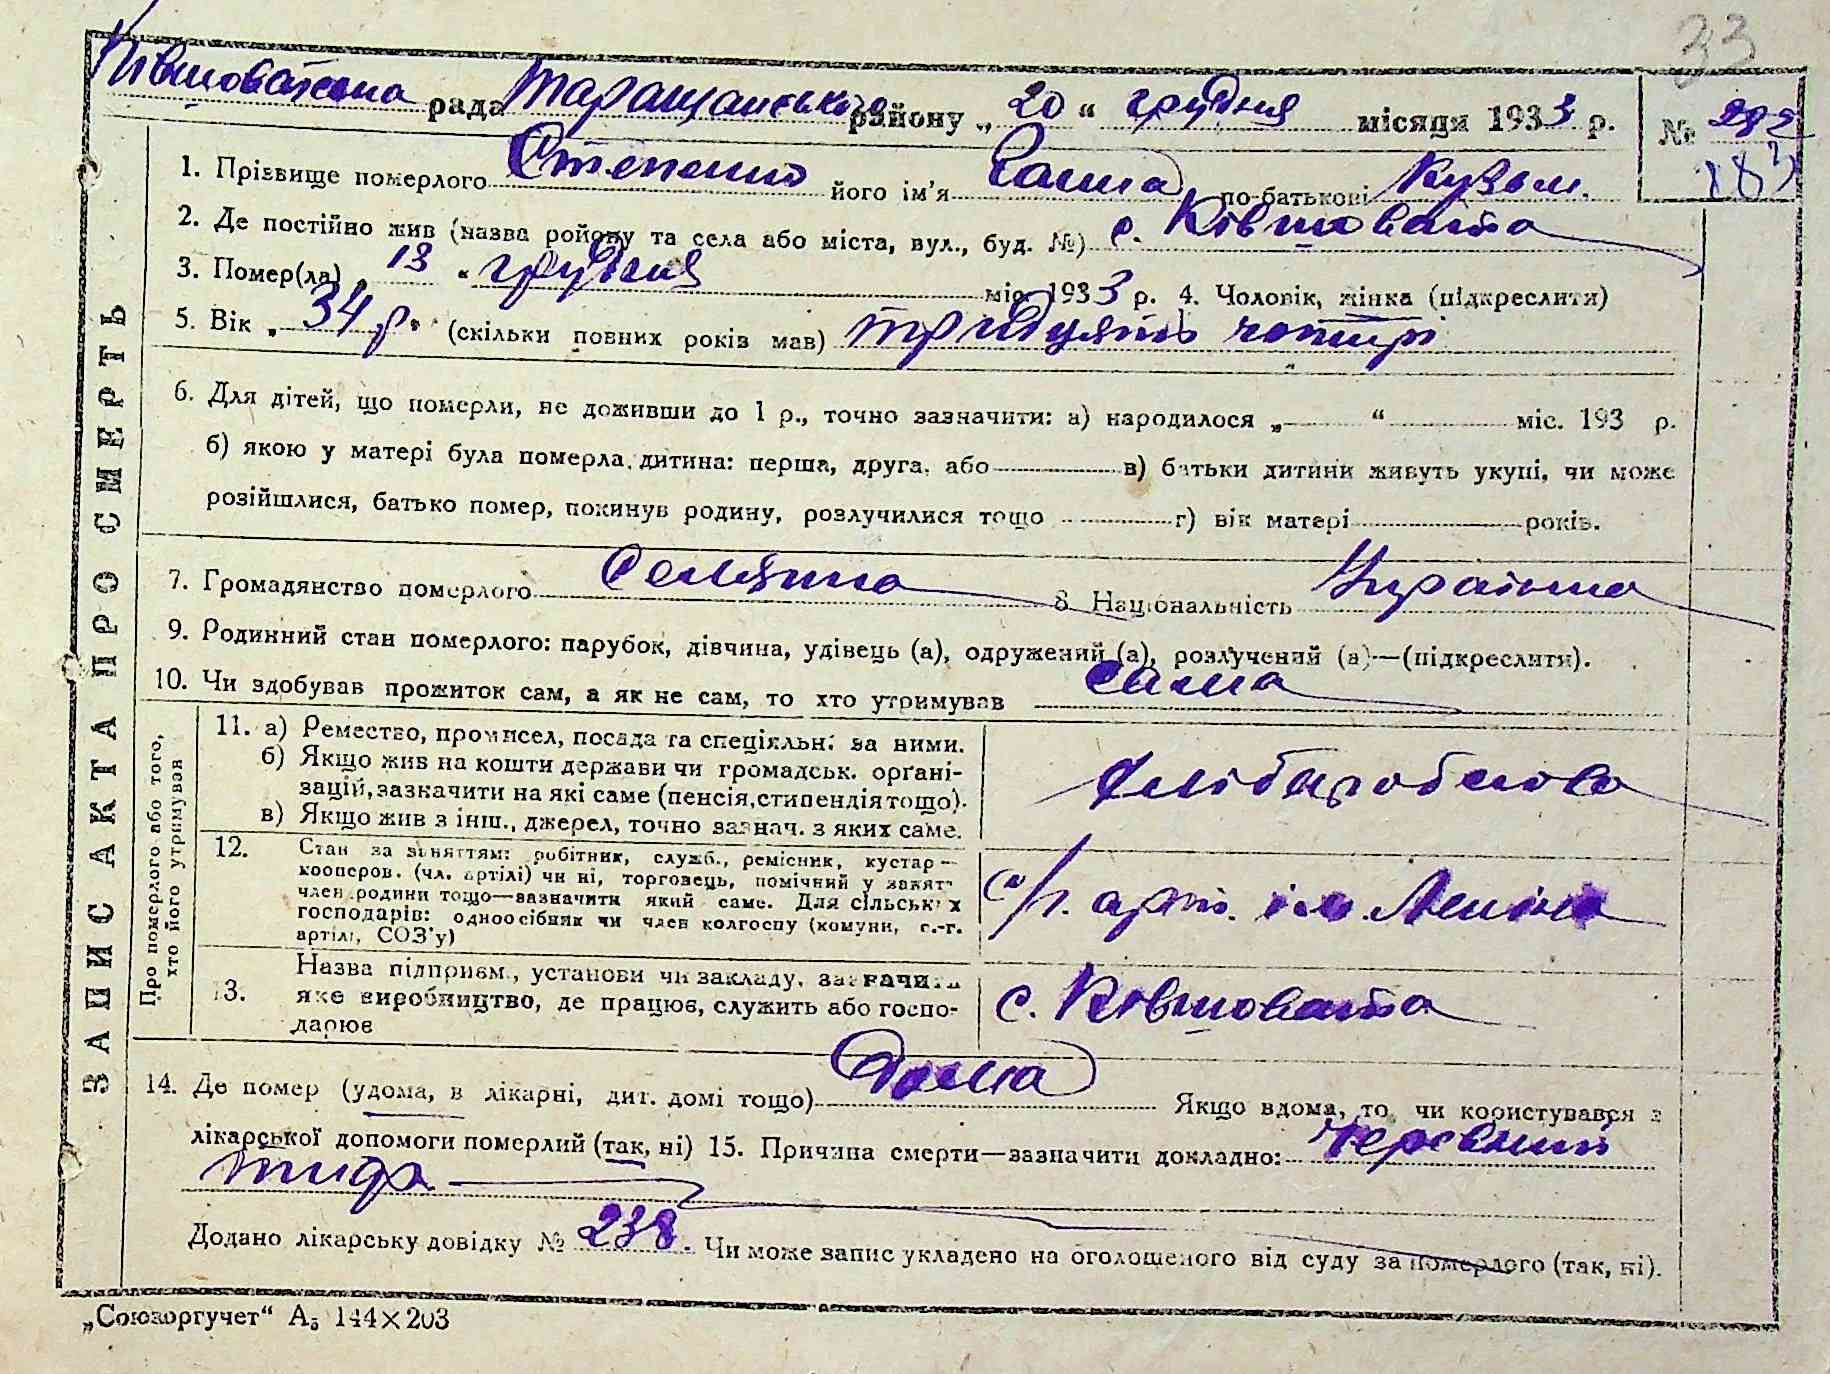 33
Ківшоватська рада Таращанського району „ 20 “ грудня місяця 1933 р. № 282
182
1. Прізвище померлого Степенко його ім'я Ганна по-батькові Кузьм.
2. Де постійно жив (назва ройону та села або міста, вул., буд. №) с. Ківшовата
3. Помер(ла) „ 13 “ грудня міс. 1933 р. 4. Чоловік, жінка (підкреслити)
5. Вік „ 34 р. “ (скільки повних років мав) тридцять чотирі
6. Для дітей, що померли, не доживши до 1 р., точно зазначити: а) народилося „ “ міс. 193 р.
б) якою у матері була померла дитина: перша, друга, або в) батьки дитини живуть укупі, чи може
розійшлися, батько помер, покинув родину, розлучилися тощо г) вік матері років.
7. Громадянство померлого Селянка 8. Національність Українка
9. Родинний стан померлого: парубок, дівчина, удівець (а), одружений (а), розлучений (а)—(підкреслити).
10. Чи здобував прожиток сам, а як не сам, то хто утримував сама
ЗАПИС АКТА ПРО СМЕРТЬ
Про померлого або того, хто його утримував
11. а) Ремество, промисел, посада та спеціяльн. за ними.
б) Якщо жив на кошти держави чи громадськ. органі-
зацій, зазкачити на які саме (пенсія, стипендія тощо).
в) Якщо жив з інш., джерел, точно зазнач. з яких саме.
хліборобство
12. Стан за заняттям: робітник, служб., ремісник, кустар—
кооперов. (чл. артілі) чи ні, торговець, помічний у занят.
член родини тощо—зазначити який саме. Для сільських
господарів: одноосібник чи член колгоспу (комуни, с.-г.
артілі, СОЗ'у)
с/г. арт. ім. Леніна
13. Назва підприєм., установи чи закладу, зазначити
яке виробництво, де працює, служить або госпо-
дарює
с. Ківшовата
14. Де помер (удома, в лікарні, дит. домі тощо) Дома Якщо вдома, то чи користувався з
лікарської допомоги померлий (так, ні) 15. Причина смерти—зазначити докладно: Черевний
тиф
Додано лікарську довідку № 238. Чи може запис укладено на оголошеного від суду за померлого (так, ні).
„Союзоргучет“ А5 144×203